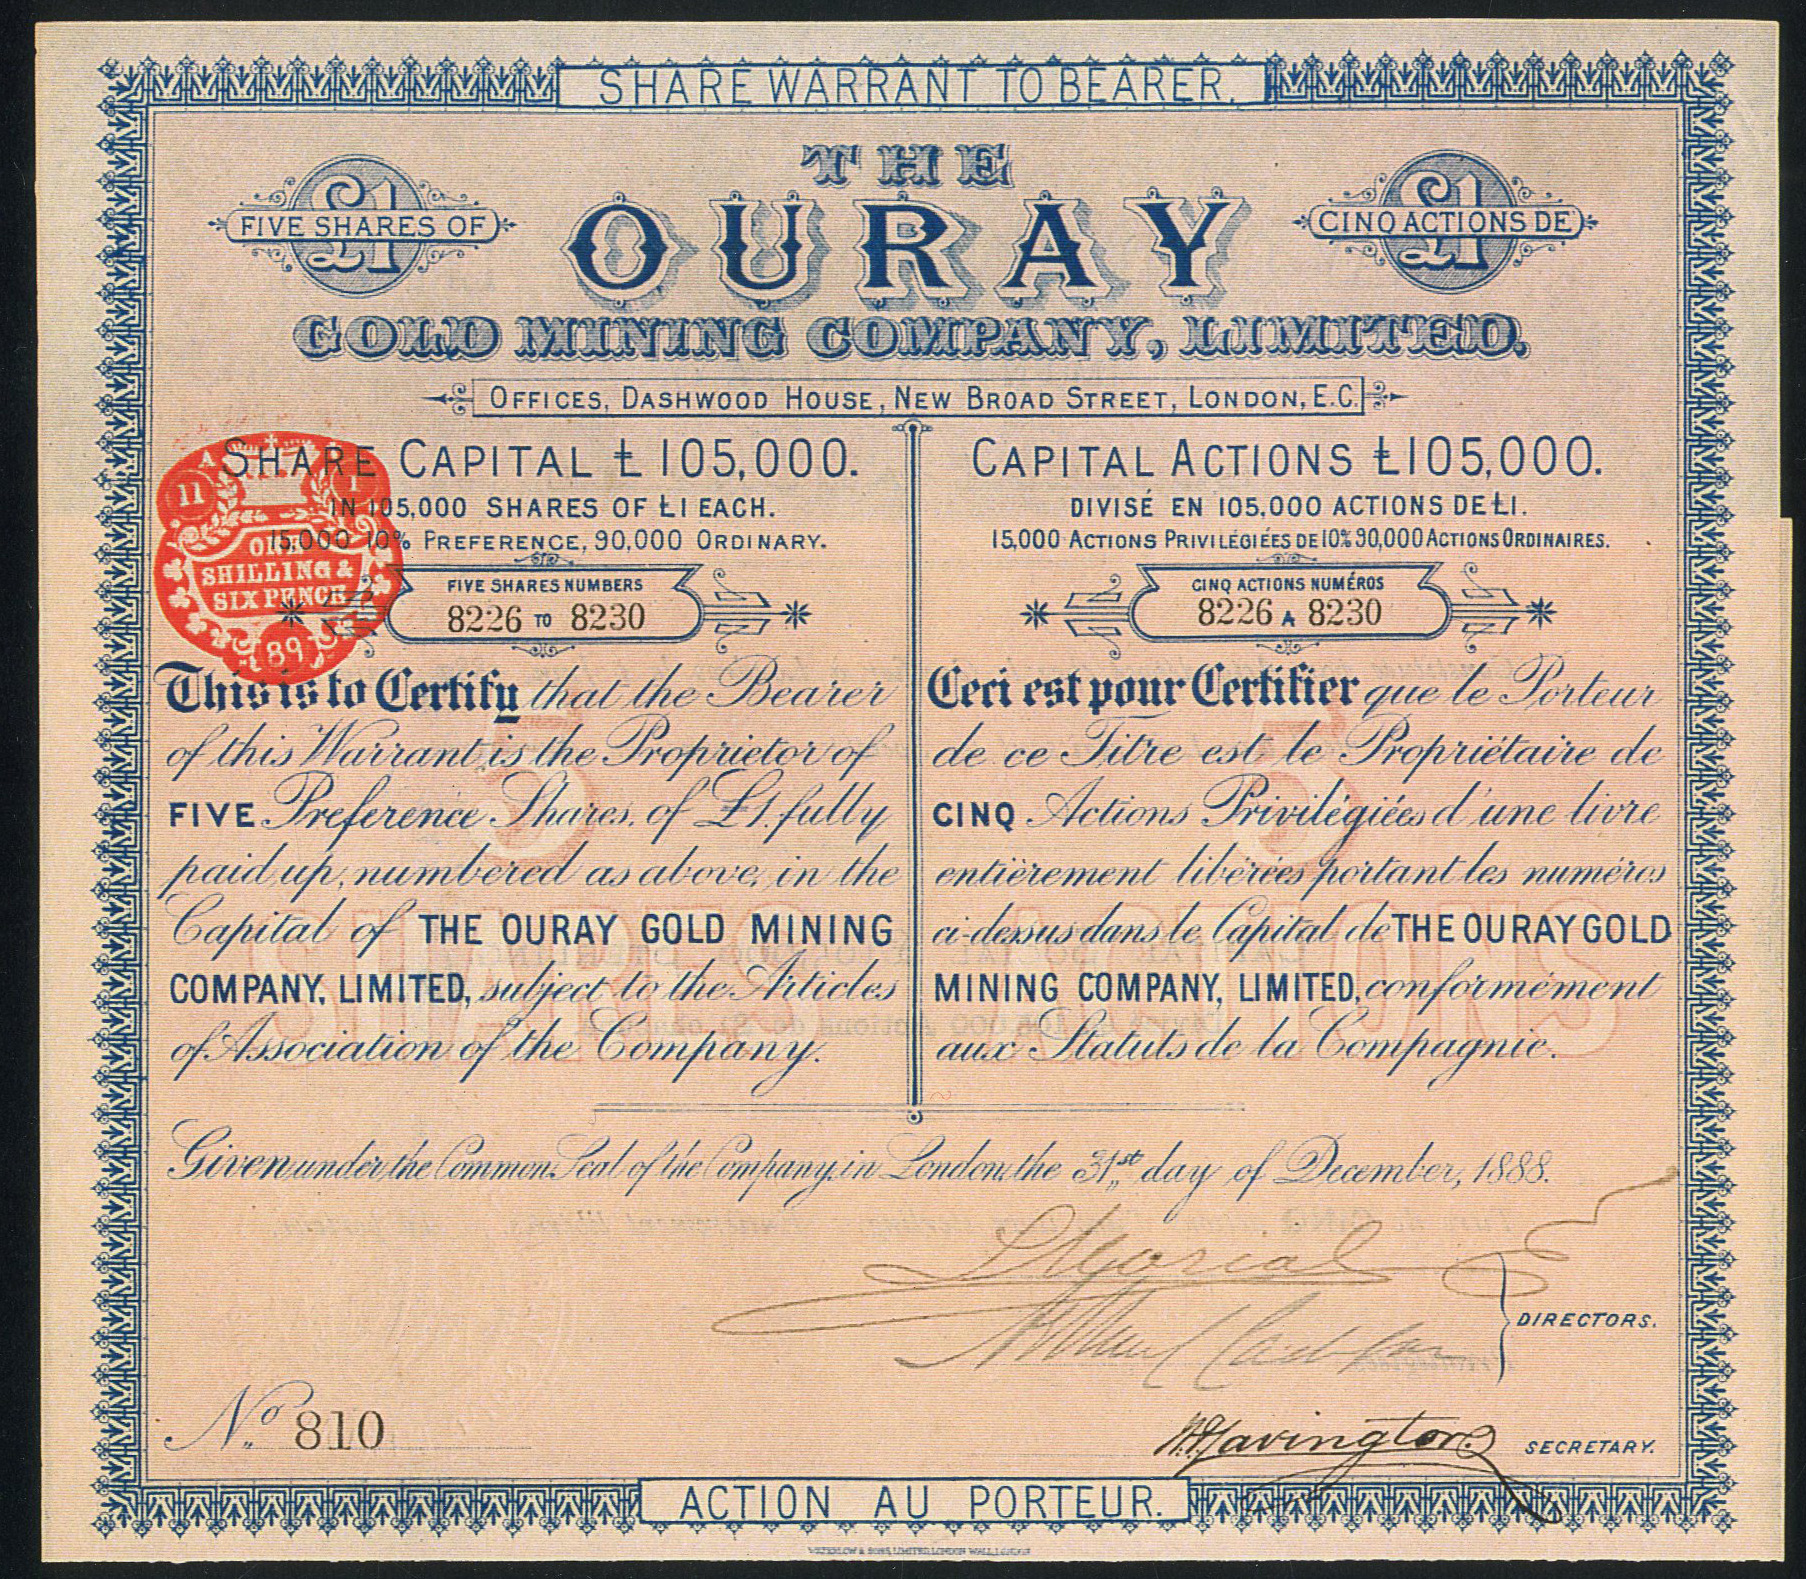 SHARE WARRANT TO BEARER.
THE
£1
FIVE SHARES OF
OURAY
£1
CINQ ACTIONS DE
GOLD MINING COMPANY, LIMITED.
OFFICES, DASHWOOD HOUSE, NEW BROAD STREET, LONDON, E.C.
SHARE CAPITAL £105,000.
IN 105,000 SHARES OF £1 EACH.
15,000 10% PREFERENCE, 90,000 ORDINARY.
FIVE SHARES NUMBERS
8226 TO 8230
A
11
1
ONE
SHILLING &
SIX PENCE
89
This is to Certify that the Bearer
of this Warrant is the Proprietor of
FIVE Preference Shares, of £1, fully
paid up, numbered as above, in the
Capital of THE OURAY GOLD MINING
COMPANY, LIMITED, subject to the Articles
of Association of the Company.
5
SHARES
CAPITAL ACTIONS £105,000.
DIVISÉ EN 105,000 ACTIONS DE £1.
15,000 ACTIONS PRIVILÉGIÉES DE 10% 90,000 ACTIONS ORDINAIRES.
CINQ ACTIONS NUMÉROS
8226 A 8230
Ceci est pour Certifier que le Porteur
de ce Titre est le Propriétaire de
CINQ Actions Privilégiées d'une livre
entièrement libérées portant les numéros
ci-dessus dans le Capital de THE OURAY GOLD
MINING COMPANY, LIMITED, conformément
aux Statuts de la Compagnie.
5
ACTIONS
Given under the Common Seal of the Company, in London, the 31st day of December, 1888.
DIRECTORS.
No. 810
SECRETARY.
ACTION AU PORTEUR.
WATERLOW & SONS, LIMITED, LONDON WALL, LONDON